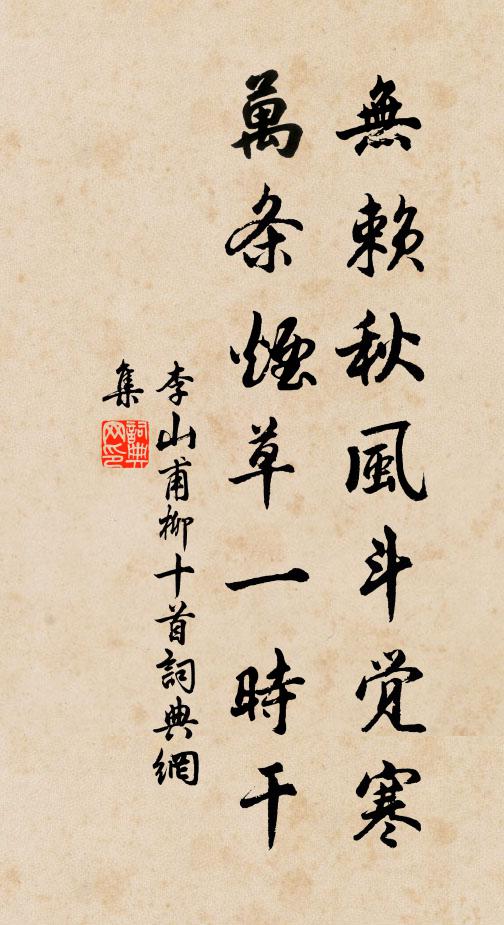 無賴秋風斗觉寒
萬条煙草一時干
李山甫柳十首詞典網
集
詞典
网印